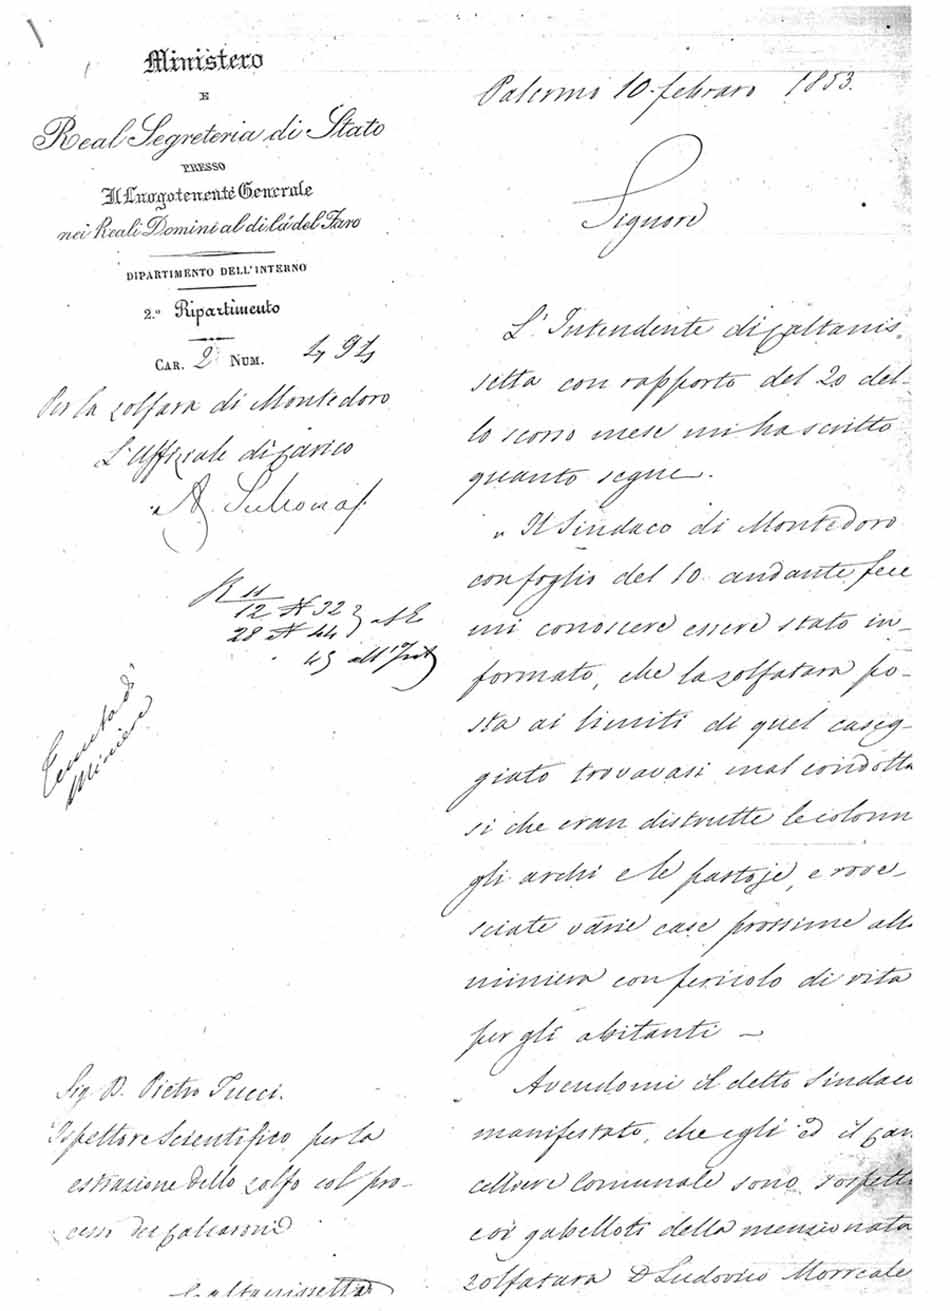 Ministero
E
Real Segreteria di Stato
PRESSO
Il Luogotenente Generale
nei Reali Domini al di la' del Faro
DIPARTIMENTO DELL'INTERNO
2.º Ripartimento
CAR. 2 NUM.
Per la zolfara di Montedoro
L'Uffiziale di Carico
12 N 32
28 N 44
45 all'Int
Tenuta di
Miniere
Sig. D. Pietro Tucci.
Ispettore Scientifico per la
estrazione dello zolfo col pro-
cesso dei Calcaroni
Caltanissetta
Palermo 10. febraro 1853.
Signore
L'Intendente di Caltanis-
setta con rapporto del 20 del-
lo scorso mese mi ha scritto
quanto segue.
" Il Sindaco di Montedoro
con foglio del 10 andante fece
mi conoscere essere stato in-
formato, che la zolfatara po-
sta ai limiti di quel caseg-
giato trovavasi mal condotta
si che eran distrutte le colonn
gli archi e le pastoje, e rove-
sciate varie case prossime alla
miniera con pericolo di vita
per gli abitanti —
Avendomi il detto Sindaco
manifestato, che egli ed il Can
celliere Comunale sono sospetti
coi gabelloti della menzionata
zolfatara D Ludovico Morreale